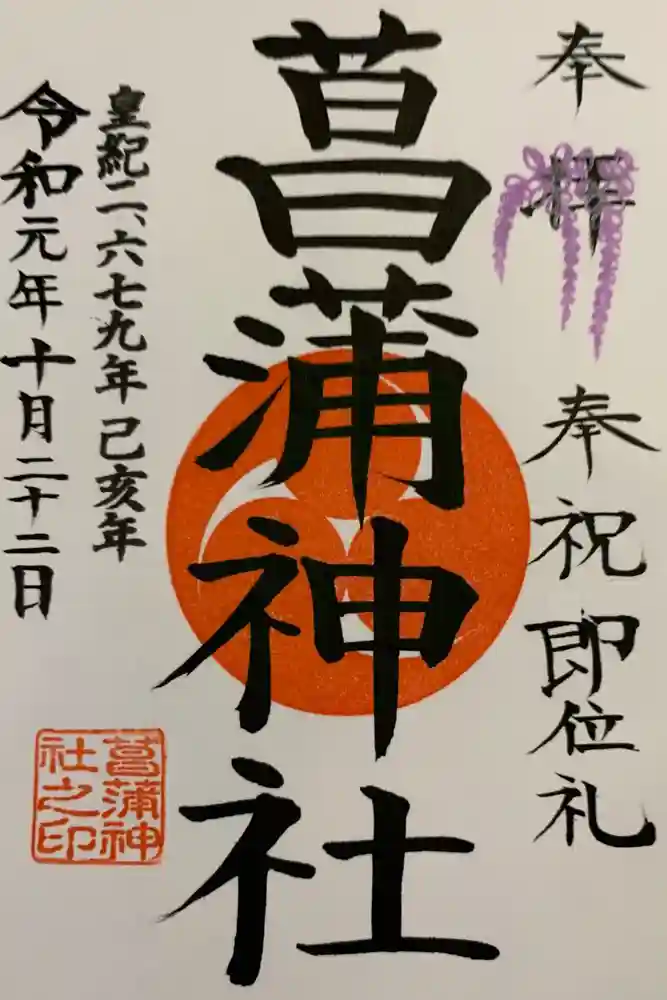 奉拝
奉祝即位礼
菖蒲神社
皇紀二、六七九年己亥年
令和元年十月二十二日
菖蒲神
社之印